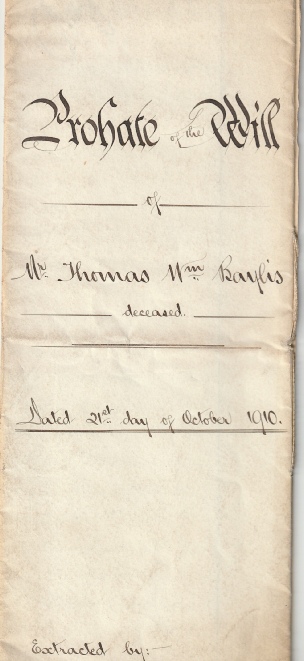 Probate of the Will
of
Mr. Thomas Wm Baylis
deceased.
Dated 21st day of October 1910.
Extracted by:-